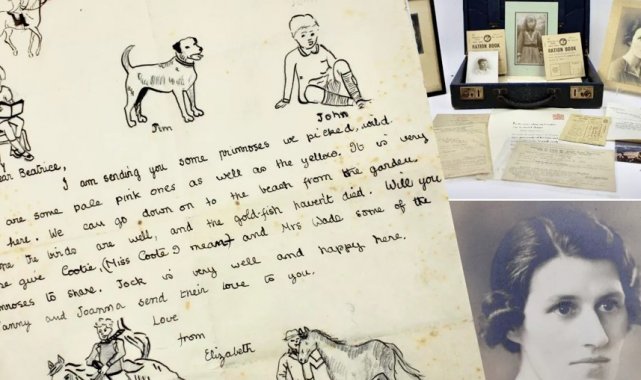 Jim
John
ear Beatrice,
I am sending you some primroses we picked, wild
are some pale pink ones as well as the yellow. It is very
here. We can go down on to the beach from the garden.
the birds are well, and the gold-fish havent died. Will you
give Cootie, (Miss Coote I meant) and Mrs Wade some of the
mroses to share. Jock is very well and happy here.
anny and Joanna send their love to you.
Love
from
Elizabeth
RATION BOOK
RATION BOOK